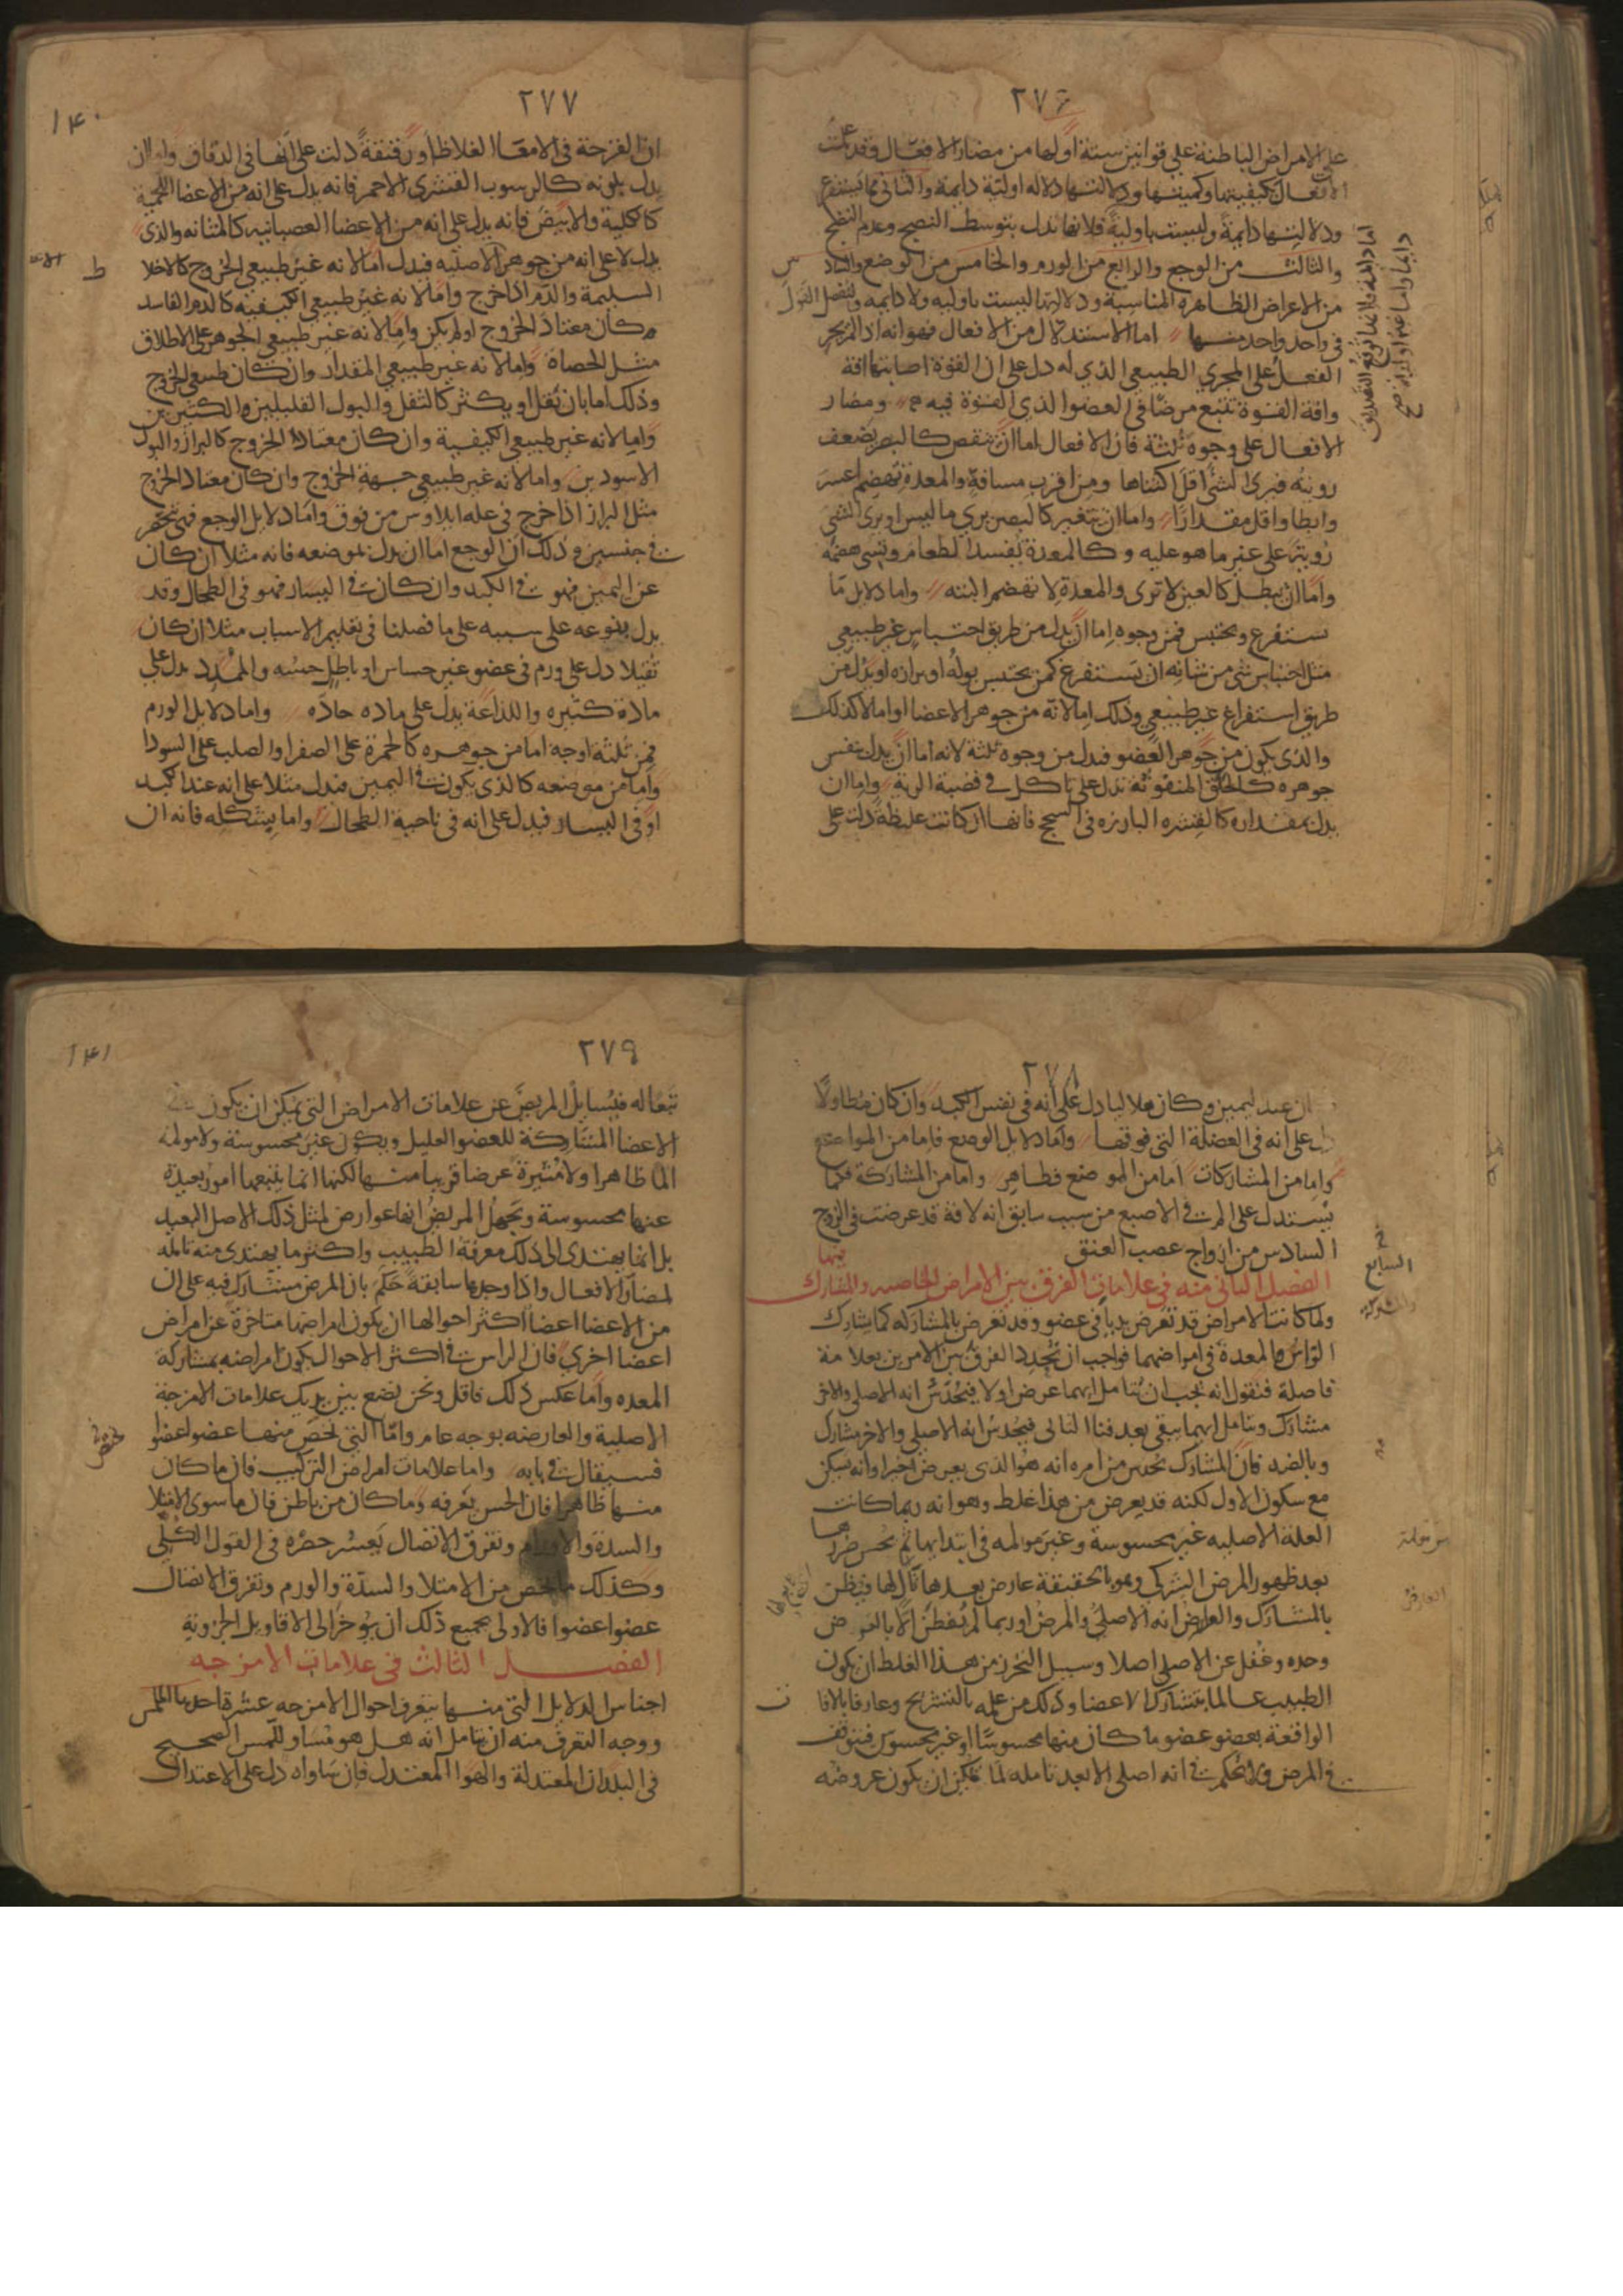 ٢٧٦
على الامراض الباطنة علي قوانين ستة اولها من مضار الافعال وقد علمت
الافعال بكيفيتها وكميتها ودلالتها دلاله اولية دايمة والثاني مما يستفرغ
ودلالتها دايمة وليست باولية فلانها تدل بتوسط النضج وعدم النضج
والثالث من الوجع والرابع من الورم والخامس من الوضع والسادس
من الاعراض الظاهرة المناسبة ودلالتها ليست باوليه ولا دايمه ولنفصل القول
في واحد واحد منها اما الاستدلال من الافعال فهو انه اذا لم يجر
الفعل على المجري الطبيعي الذي له دل على ان القوة اصابتها افة
وافة القوة تتبع مرضا في العضو الذي القوة فيه ومضار
الافعال على وجوه ثلثة فان الافعال اما ان تنقص كالبصر يضعف
رويته فيرى الشئ اقل اكتناها ومن اقرب مسافة والمعدة تهضم اعسر
وابطا واقل مقدارا واما ان يتغير كالبصر يري ما ليس او يرى الشئ
رويته على غير ما هو عليه وكالمعدة يفسد الطعام ويسئ هضمه
واما ان يبطل كالعين لا ترى والمعدة لا تهضم البته واما دلايل ما
يستفرغ ويحتبس فمن وجوه اما ان يدل من طريق احتباس غير طبيعي
مثل احتباس شئ من شانه ان يستفرغ كمن يحتبس بوله او برازه او يدل من
طريق استفراغ غير طبيعي وذلك اما لانه من جوهر الاعضا او اما لا كذلك
والذي يكون من جوهر العضو فيدل من وجوه ثلثة لانه اما ان يدل بنفس
جوهره كالحلق المنفوثة تدل على تاكل في قصبة الرية واما ان
يدل بمقداره كالقشره البارزه في السحج فانها ان كانت غليظة دلت على
٢٧٧
١٤٠
ان القرحة في الامعا الغلاظ او رقيقة دلت على انها في الدقاق واما ان
يدل بلونه كالرسوب القشري الاحمر فانه يدل على انه من الاعضا اللحمية
كالكلية والابيض فانه يدل على انه من الاعضا العصبانيه كالمثانه والذي
يدل لا على انه من جوهر الاصليه فيدل اما لانه غير طبيعي الخروج كالاخلا
السليمة والدم اذا خرج واما لانه غير طبيعي الكيفيه كالدم الفاسد
كان معتاد الخروج او لم يكن واما لانه غير طبيعي الجوهر على الاطلاق
مثل الحصاة واما لانه غير طبيعي المقدار وان كان طبيعي الخروج
وذلك اما بان يقل او يكثر كالثفل والبول القليلين والكثيرين
واما لانه غير طبيعي الكيفية وان كان معتاد الخروج كالبراز والبول
الاسودين واما لانه غير طبيعي جهة الخروج وان كان معتاد الخروج
مثل البراز اذا خرج في عله ايلاوس من فوق واما دلايل الوجع فهي تنحصر
في جنسين وذلك ان الوجع اما ان يدل بموضعه فانه مثلا ان كان
عن اليمين فهو في الكبد وان كان في اليسار فهو في الطحال وقد
يدل بنوعه على سببه على ما فصلنا في تعليم الاسباب مثلا ان كان
ثقيلا دل على ورم في عضو غير حساس او باطل حسه والممدد يدل على
مادة كثيره واللذاعة يدل على ماده حاده واما دلايل الورم
فمن ثلثه اوجه اما من جوهره كالحمرة على الصفرا والصلب على السودا
واما من موضعه كالذي يكون في اليمين فيدل مثلا على انه عند الكبد
او في اليسار فيدل على انه في ناحية الطحال واما بشكله فانه ان
٢٧٨
ان عند اليمين وكان هلاليا دل على انه في نفس الكبد وان كان مطاولا
دل على انه في العضلة التي فوقها واما دلايل الوضع فاما من المواضع
واما من المشاركات اما من الموضع فظاهر واما من المشاركة فكما
يستدل على الم في الاصبع من سبب سابق انه لافة قد عرضت في الزوج
السادس من ازواج عصب العنق
السابع
الفصل الثاني منه في علامات الفرق بين الامراض الخاصيه والمشارك
فيها
ولما كانت الامراض قد تعرض بديا في عضو وقد تعرض بالمشاركه كما يشارك
الراس المعدة في امراضهما فواجب ان نحدد الفرق بين الامرين بعلامة
فاصلة فنقول انه يجب ان يتامل ايهما عرض اولا فيحدس انه الاصلي والاخر
مشارك ويتامل ايهما يبقى بعد فنا الثاني فيحدس انه الاصلي والاخر مشارك
وبالضد فان المشارك يحدس من امره انه هو الذي يعرض اخيرا وانه يسكن
مع سكون الاول لكنه قد يعرض من هذا غلط وهو انه ربما كانت
العلة الاصليه غير محسوسة وغير مولمه في ابتدايها ثم يحس ضررها
بعد ظهور المرض الشركي وهو بالحقيقة عارض بعدها تال لها فيظن
بالمشارك والعارض انه الاصلي والمرض او ربما لم يفطن الا بالعرض
وحده وغفل عن الاصلي اصلا وسبيل التحرز من هذا الغلط ان يكون
الطبيب عالما بتشارك الاعضا وذلك من علمه بالتشريح وعارفا بالافا
الواقعة بعضو عضو ما كان منها محسوسا او غير محسوس فيتوقف
في المرض ولا يحكم في انه اصلي الا بعد تامله لما يمكن ان يكون عروضه
٢٧٩
١٤١
تبعا له فيسايل المريض عن علامات الامراض التي يمكن ان يكون في
الاعضا المشاركة للعضو العليل ويكون غير محسوسة ولا مولمه
الما ظاهرا ولا مثيرة عرضا قريبا منها لكنها انما يتبعها امور بعيدة
عنها محسوسة ويجهل المريض انها عوارض لمثل ذلك الاصل البعيد
بل انما يهتدي الى ذلك معرفة الطبيب واكثر ما يهتدي منه تامله
لمضار الافعال واذا وجدها سابقة حكم بان المرض مشارك فيه على ان
من الاعضا اعضا اكثر احوالها ان يكون امراضها متاخرة عن امراض
اعضا اخري فان الراس في اكثر الاحوال يكون امراضه بمشاركة
المعده واما عكس ذلك فاقل ونحن نضع بين يديك علامات الامزجة
الاصلية والعارضه بوجه عام واما التي تخص منها عضوا عضوا
فسيقال في بابه واما علامات امراض التركيب فان ما كان
منها ظاهرا فان الحس يعرفه وما كان من باطن فان ما سوى الامتلا
والسدة والاورام وتفرق الاتصال يعسر حصره في القول الكلي
وكذلك ما يخص من الامتلا والسدة والورم وتفرق الاتصال
عضوا عضوا فالاولى بجميع ذلك ان يوخر الى الاقاويل الجزويه
الفصل الثالث في علامات الامزجه
اجناس الدلايل التي منها يتعرف احوال الامزجه عشرة احدها الملمس
ووجه التعرف منه ان يتامل انه هل هو مساو للمس الصحيح
في البلدان المعتدلة والهوا المعتدل فان ساواه دل على الاعتدال